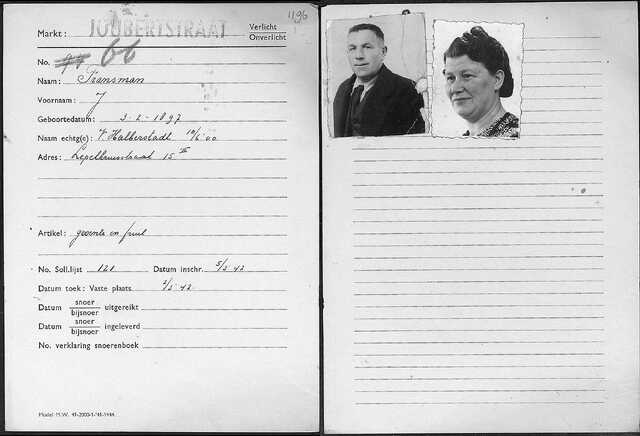 1196
Markt: JOUBERTSTRAAT Verlicht
Onverlicht
No. 66
Naam: Fransman
Voornaam: J
Geboortedatum: 3-2-1897
Naam echtg(e): V. Halberstadt 10/6 '00
Adres: Lepelkruisstraat 15 III
Artikel: groente en fruit
No. Soll.lijst 121 Datum inschr. 5/3 42
Datum toek: Vaste plaats 2/5 42
Datum snoer uitgereikt
bijsnoer
Datum snoer ingeleverd
bijsnoer
No. verklaring snoerenboek
Model M.W.